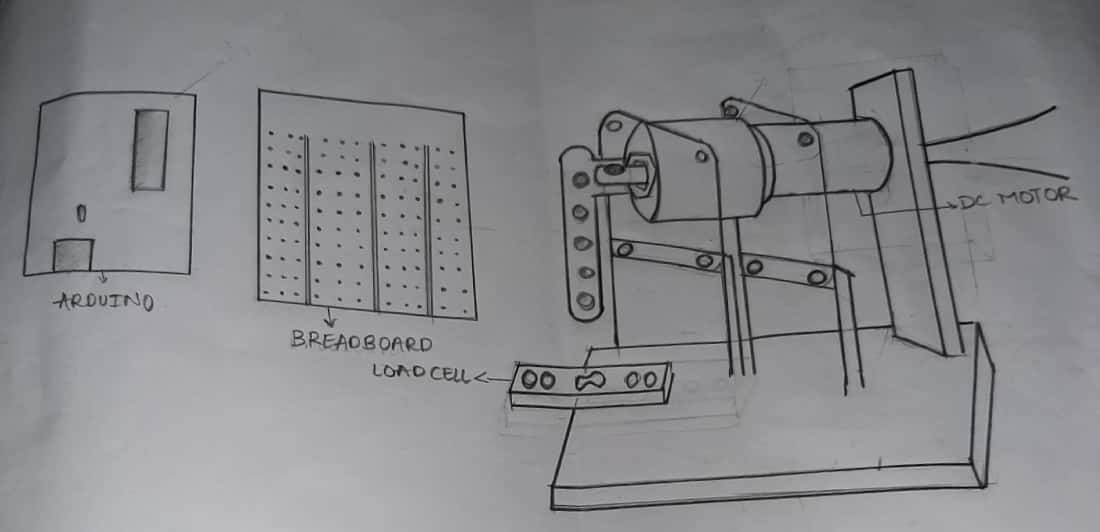 ARDUINO
BREADBOARD
LOADCELL
DC MOTOR